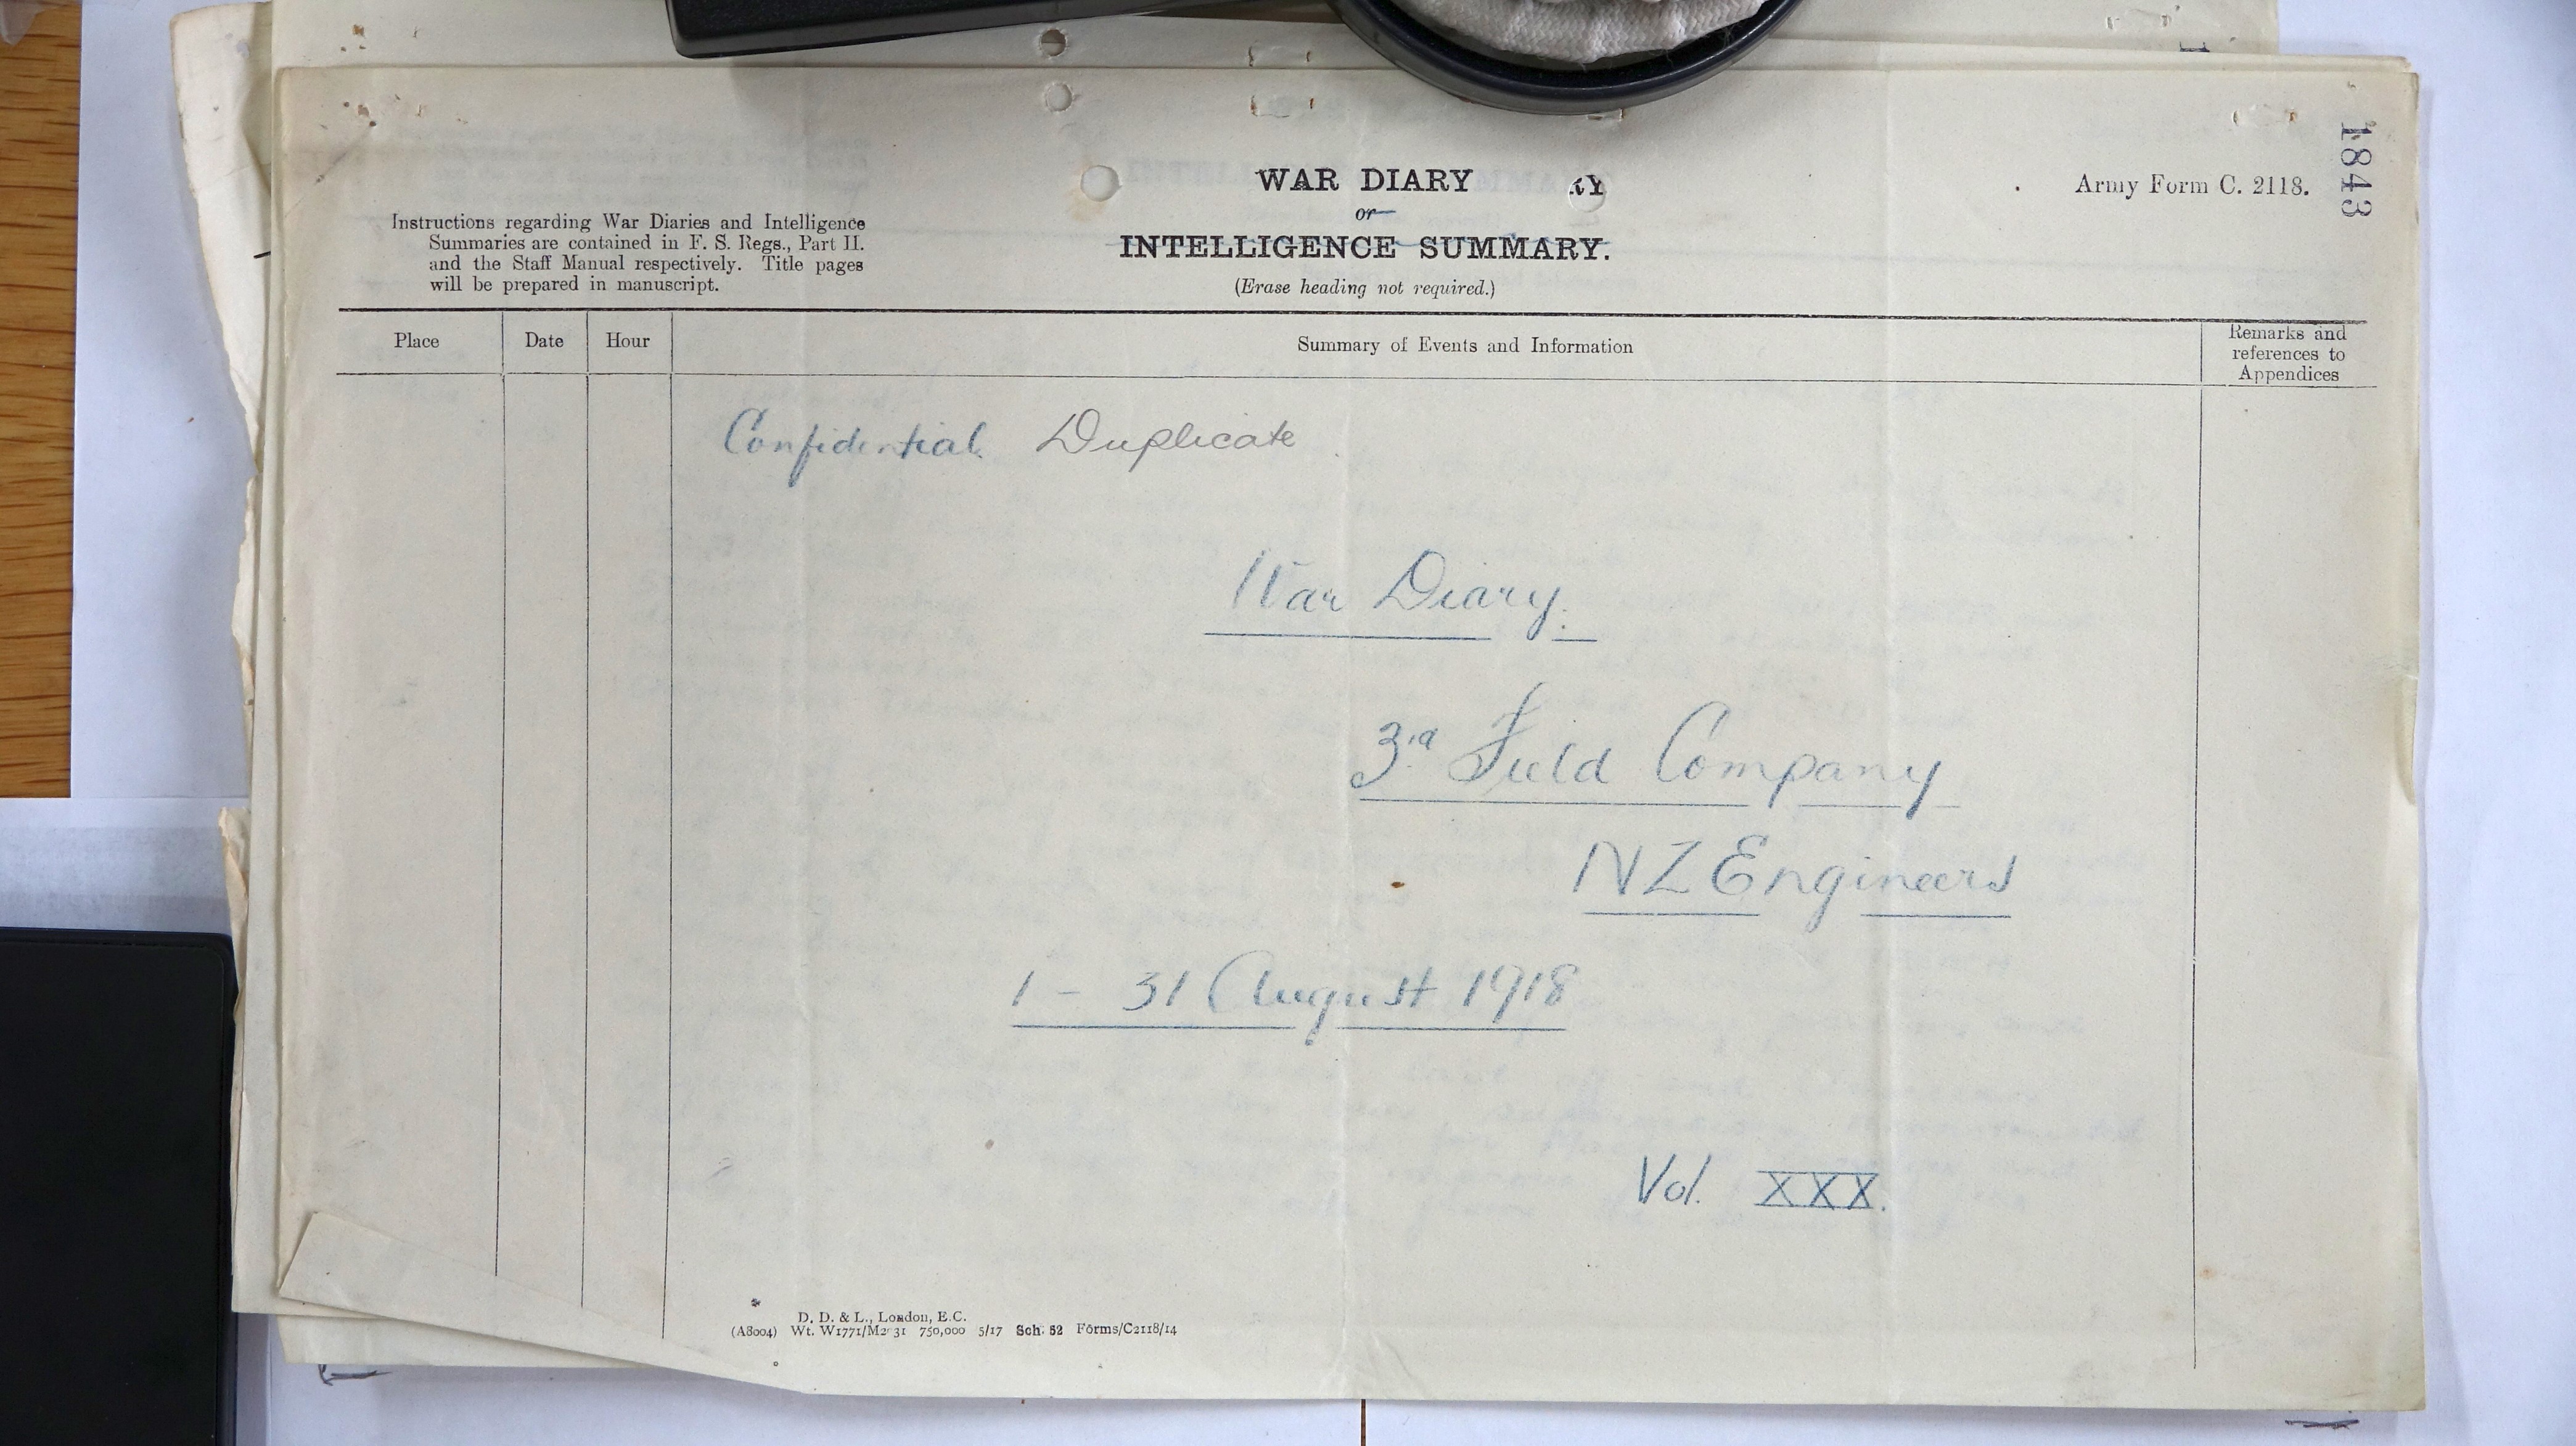 1843
WAR DIARY
RY
or
INTELLIGENCE SUMMARY.
(Erase heading not required.)
Army Form C. 2118.
Instructions regarding War Diaries and Intelligence
Summaries are contained in F. S. Regs., Part II.
and the Staff Manual respectively. Title pages
will be prepared in manuscript.
Place
Date
Hour
Summary of Events and Information
Remarks and
references to
Appendices
Confidential Duplicate
War Diary.
3rd Field Company
NZ Engineers
1 - 31 August 1918
Vol. XXX.
D. D. & L., London, E.C.
(A8004) Wt. W1771/M2 31 750,000 5/17 Sch. 52 Forms/C2118/14